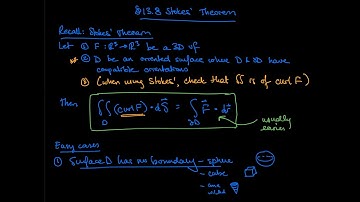 §13.8 Stokes' Theorem
Recall: Stokes' Theorem
Let ① F: ℝ³→ℝ³ be a 3D vf
② D be an oriented surface where D & ∂D have
compatible orientations
③ (when using Stokes', check that ∬ is of curl F)
Then ∬_D (curl F⃗)·dS⃗ = ∫_∂D F⃗·dr⃗
usually easier
Easy cases
① Surface D has no boundary – sphere
– cube
– ice